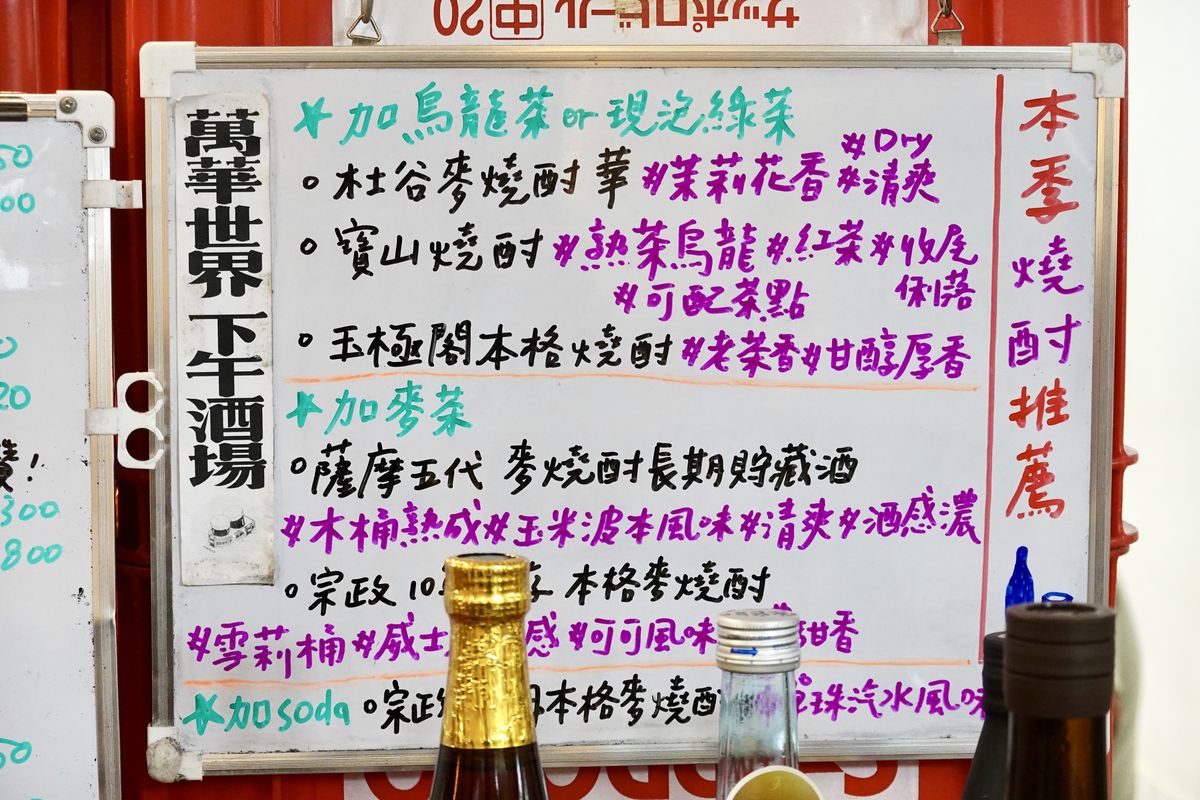 サッポロビール 中 20
萬華世界 下午酒場
本季燒酎推薦
★加烏龍茶or現泡綠茶
○杜谷麥燒酎 華 #茉莉花香 #清爽 #Dry
○寶山燒酎 #熟茶烏龍 #紅茶 #收尾俐落
#可配茶點
○玉極閣本格燒酎 #老茶香 #甘醇厚香
★加麥茶
○薩摩五代 麥燒酎長期貯藏酒
#木桶熟成 #玉米波本風味 #清爽 #酒感濃
○宗政 10 本格麥燒酎
#雪莉桶 #威士 感 #可可風味 甜香
★加soda ○宗政 本格麥燒酎 珠汽水風味
50
00
0
20
!
300
800
50